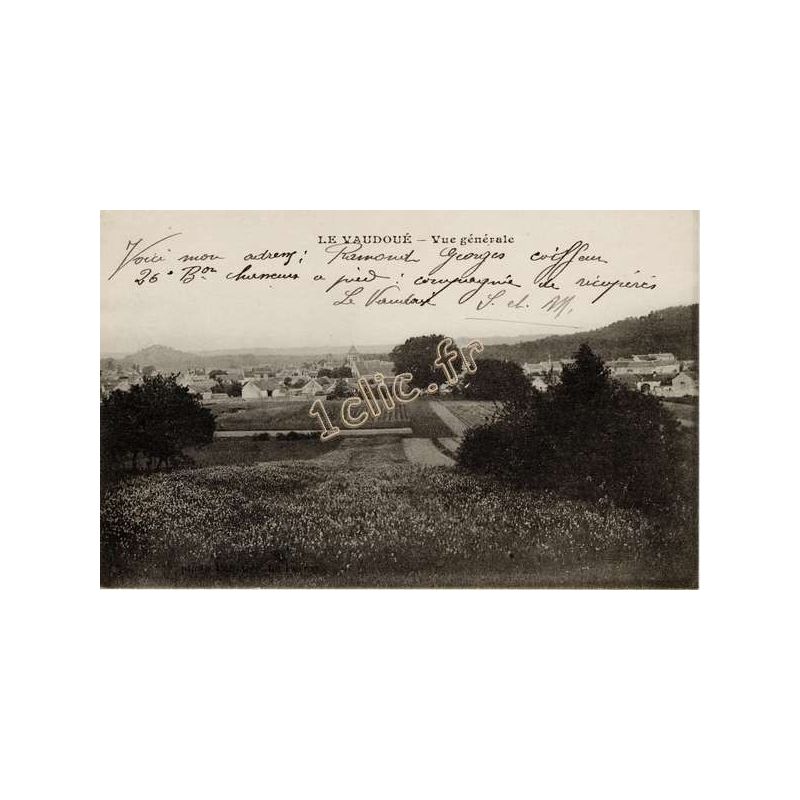 LE VAUDOUÉ — Vue générale
Voici mon adress; Ramond Georges coiffeur
26e Bon chasseurs a pied : compagnie de récupérés
Le Vaudoué S. et. M.
1clic.fr